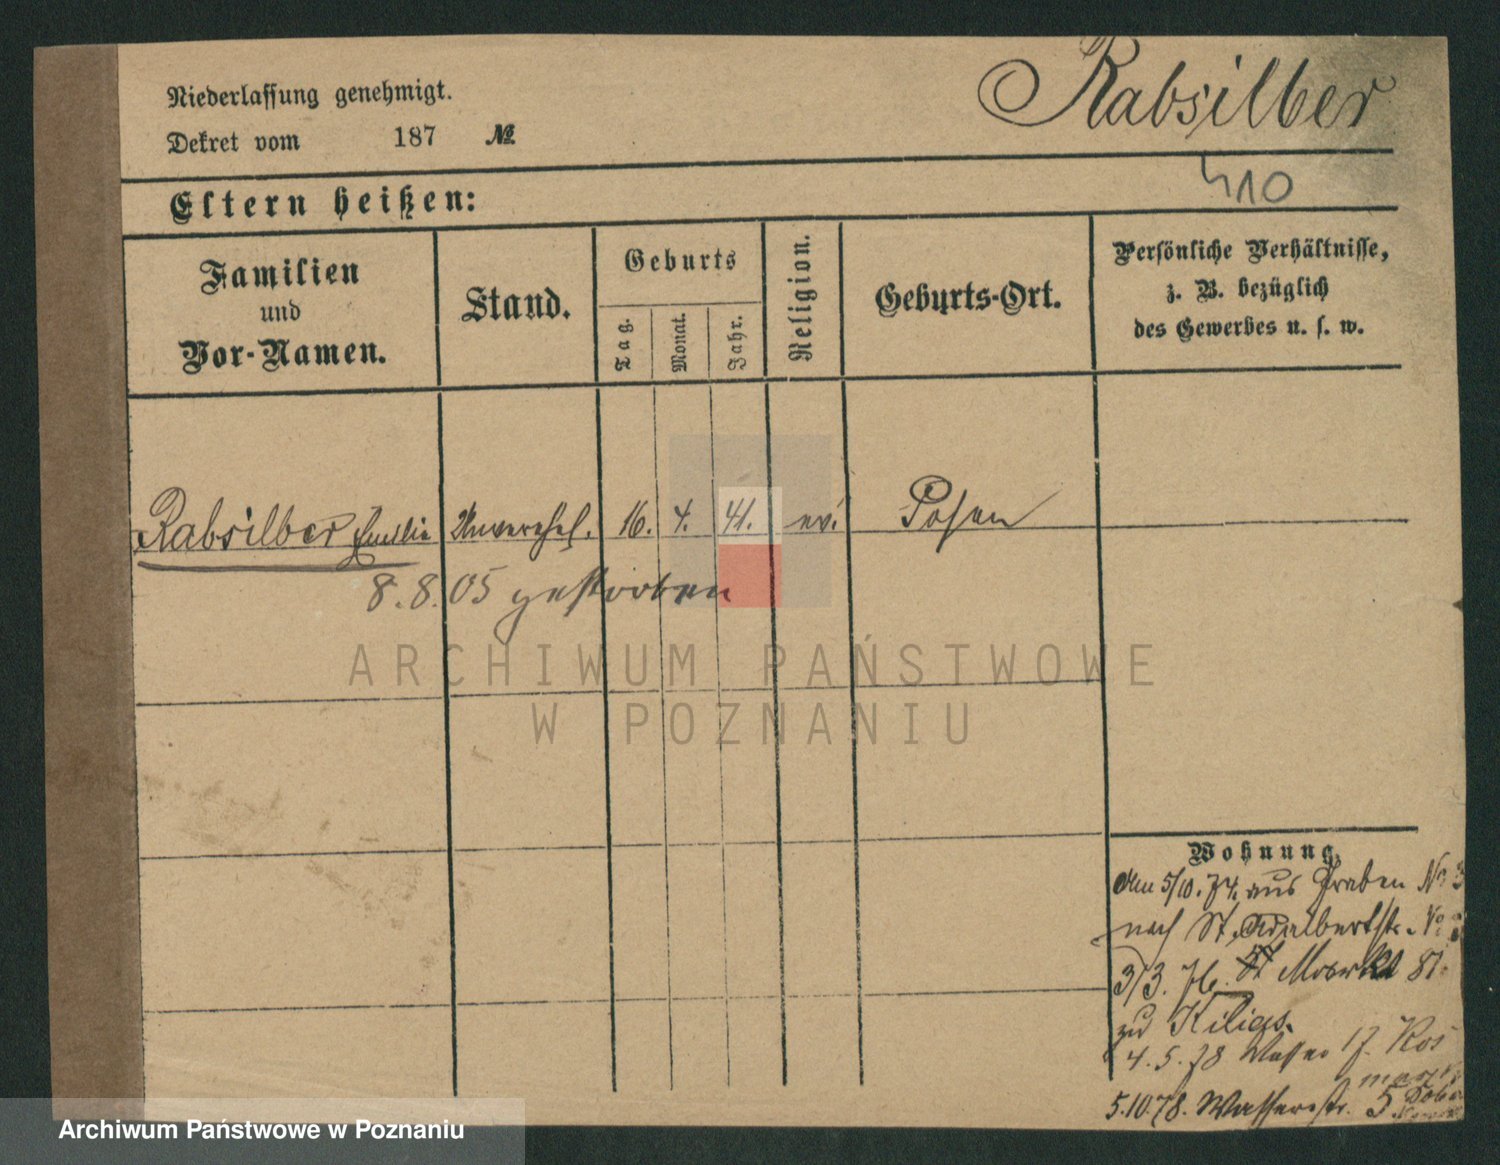 Rabsilber
Niederlassung genehmigt.
Dekret vom 187 №
410
Eltern heißen:
Familien und Vor-Namen.
Stand.
Geburts
Tag.
Monat.
Jahr.
Religion.
Geburts-Ort.
Persönliche Verhältnisse,
z. B. bezüglich
des Gewerbes u. s. w.
Rabsilber Emilie Unverehel. 16. 4. 41. ev. Posen
8.8.05 gestorben
ARCHIWUM PAŃSTWOWE
W POZNANIU
Wohnung.
Am 5/10. 74. aus Graben No
nach St. Adalbertstr. No
3/3. 76. Markt 81.
zu Kiligs.
4. 5. 78 Wasser 17.
5.10.78. Wasserstr. 5
Archiwum Państwowe w Poznaniu